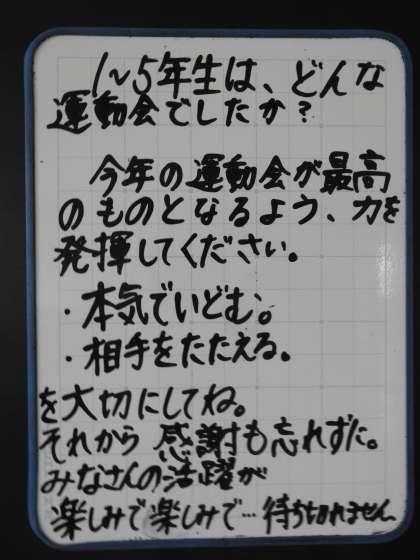 1～5年生は、どんな
運動会でしたか?
今年の運動会が最高
のものとなるよう、力を
発揮してください。
・本気でいどむ。
・相手をたたえる。
を大切にしてね。
それから 感謝も忘れずに。
みなさんの活躍が
楽しみで楽しみで…待ちきれません